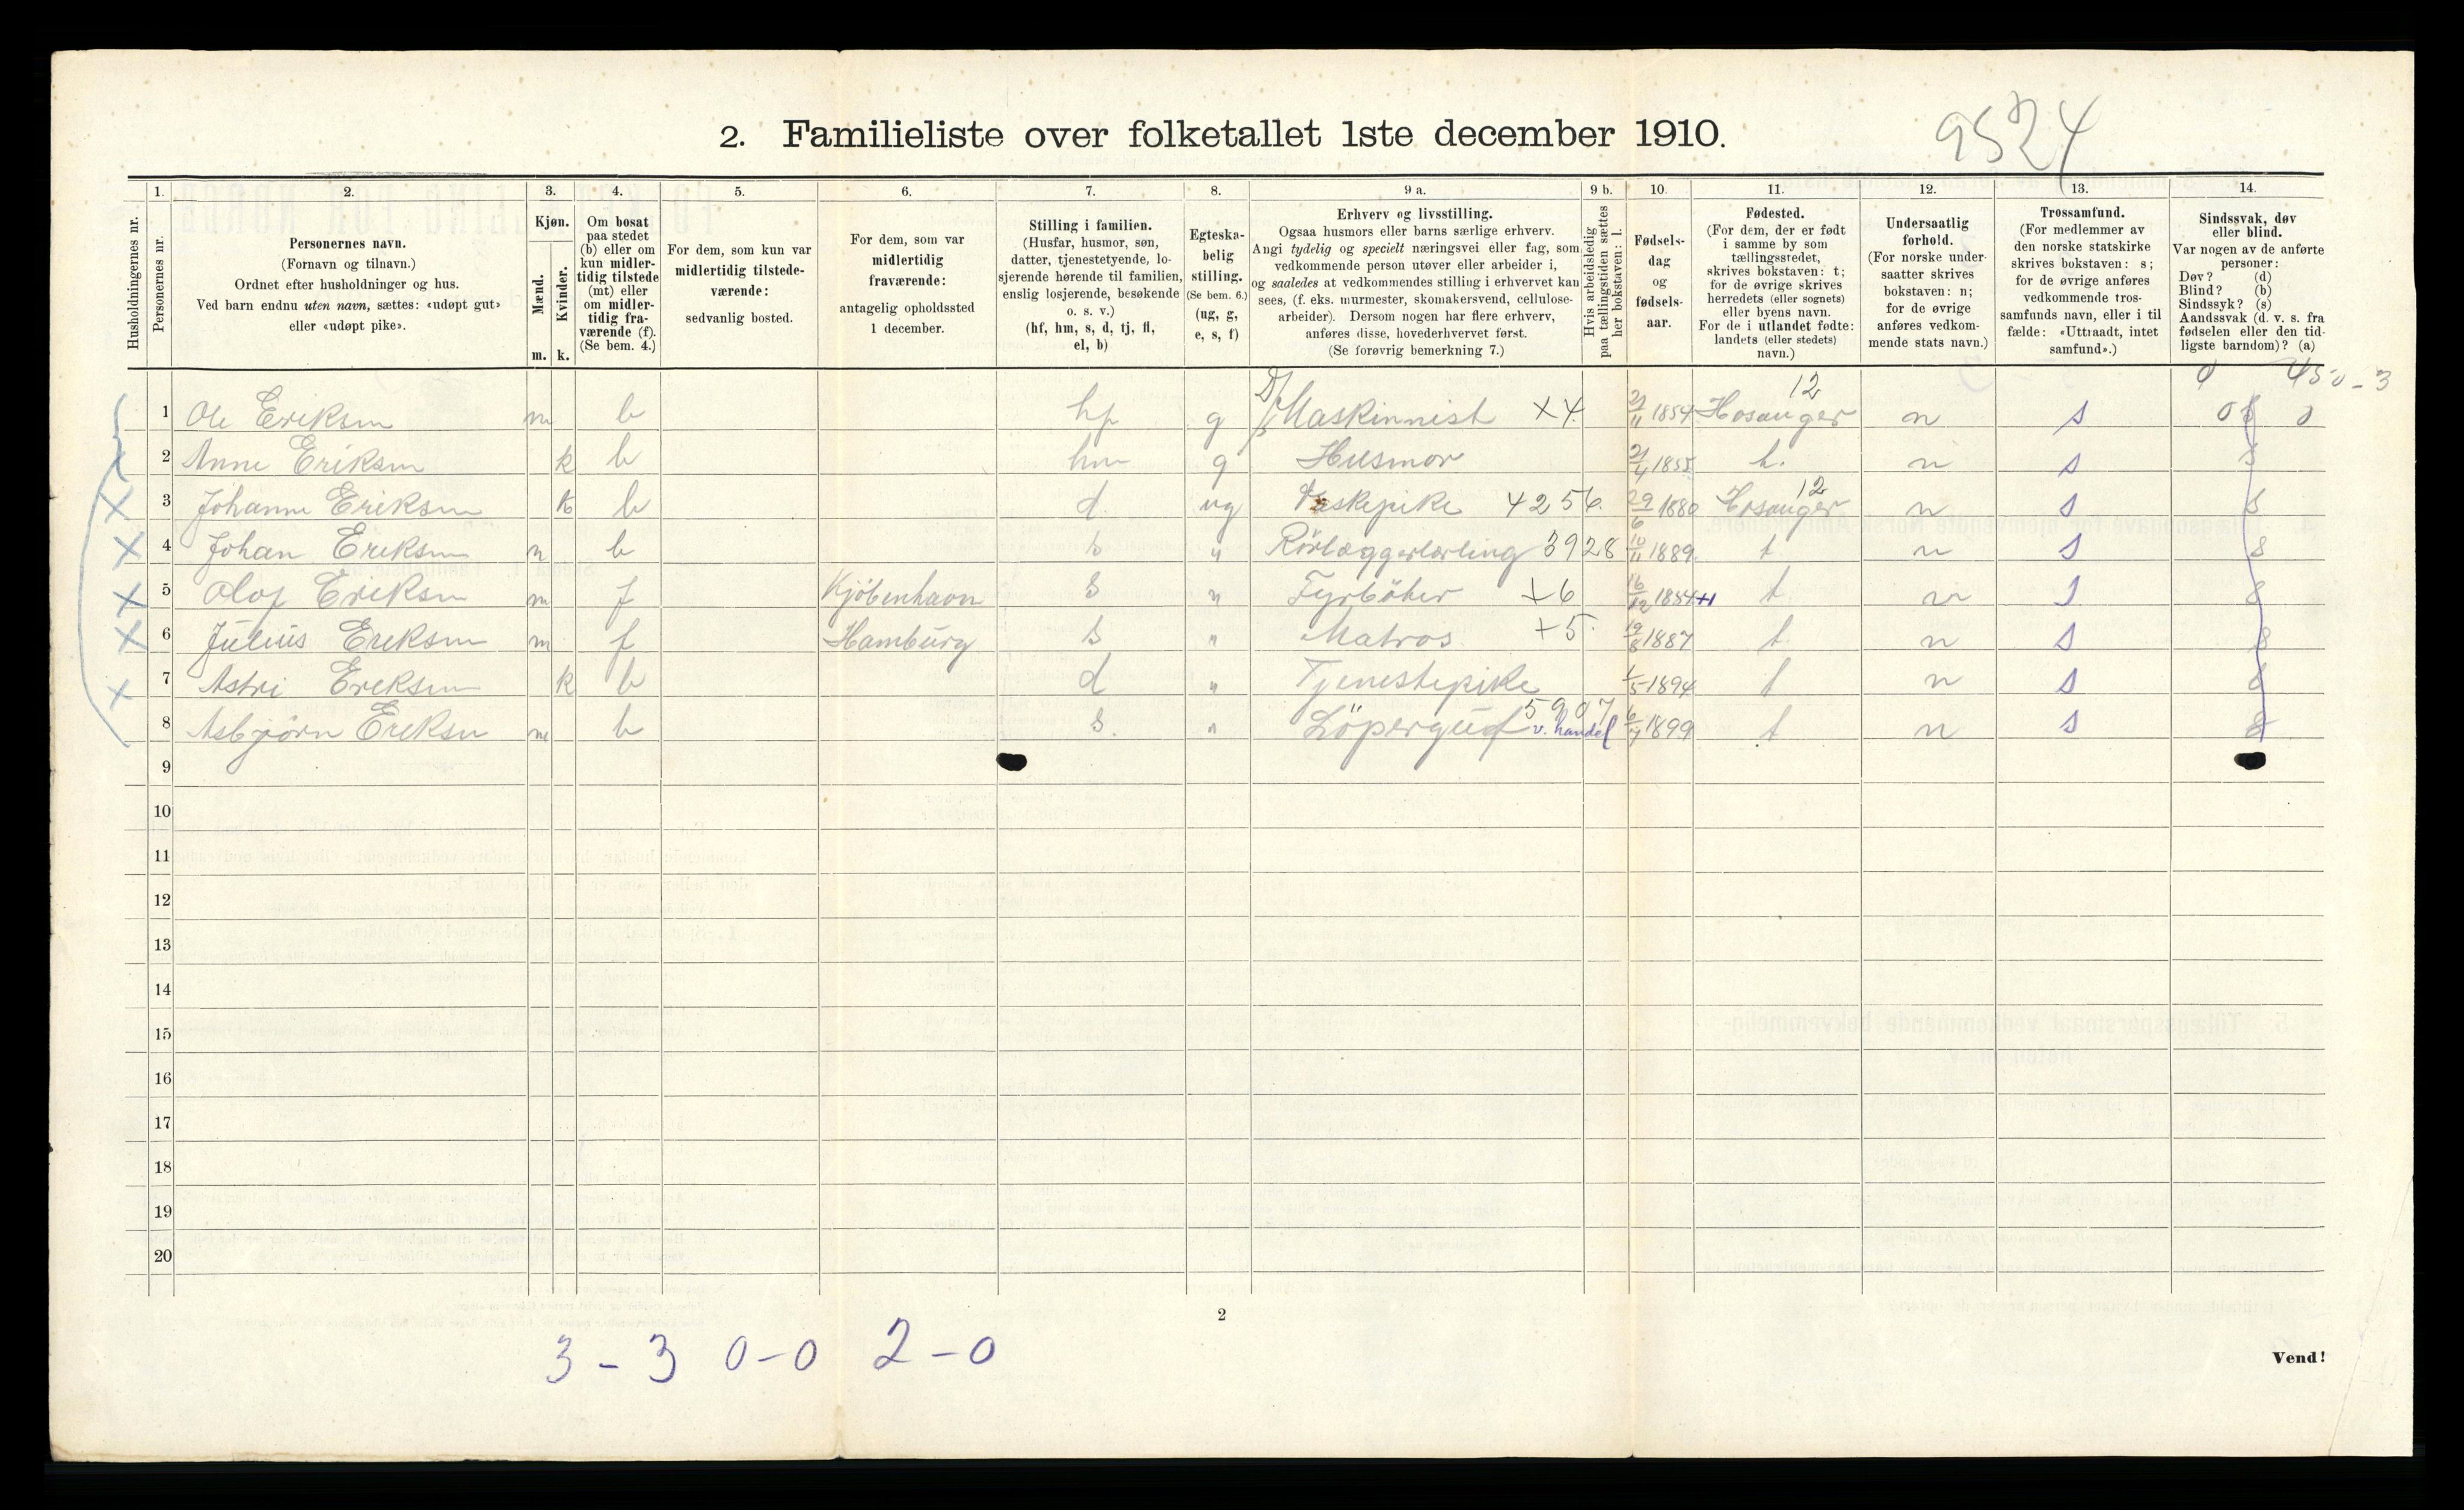 2. Familieliste over folketallet 1ste december 1910.
9524
Husholdningernes nr.
1. Personernes nr.
2. Personernes navn.
(Fornavn og tilnavn.)
Ordnet efter husholdninger og hus.
Ved barn endnu uten navn, sættes: «udøpt gut»
eller «udøpt pike».
3. Kjøn.
Mænd. m.
Kvinder. k.
4. Om bosat
paa stedet
(b) eller om
kun midler-
tidig tilstede
(mt) eller
om midler-
tidig fra-
værende (f).
(Se bem. 4.)
5. For dem, som kun var
midlertidig tilstede-
værende:
sedvanlig bosted.
6. For dem, som var
midlertidig
fraværende:
antagelig opholdssted
1 december.
7. Stilling i familien.
(Husfar, husmor, søn,
datter, tjenestetyende, lo-
sjerende hørende til familien,
enslig losjerende, besøkende
o. s. v.)
(hf, hm, s, d, tj, fl,
el, b)
8. Egteska-
belig
stilling.
(Se bem. 6.)
(ug, g,
e, s, f)
9 a. Erhverv og livsstilling.
Ogsaa husmors eller barns særlige erhverv.
Angi tydelig og specielt næringsvei eller fag, som
vedkommende person utøver eller arbeider i,
og saaledes at vedkommendes stilling i erhvervet kan
sees, (f. eks. murmester, skomakersvend, cellulose-
arbeider). Dersom nogen har flere erhverv,
anføres disse, hovederhvervet først.
(Se forøvrig bemerkning 7.)
9 b. Hvis arbeidsledig
paa tællingstiden sættes
her bokstaven: l.
10. Fødsels-
dag
og
fødsels-
aar.
11. Fødested.
(For dem, der er født
i samme by som
tællingsstedet,
skrives bokstaven: t;
for de øvrige skrives
herredets (eller sognets)
eller byens navn.
For de i utlandet fødte:
landets (eller stedets)
navn.)
12. Undersaatlig
forhold.
(For norske under-
saatter skrives
bokstaven: n;
for de øvrige
anføres vedkom-
mende stats navn.)
13. Trossamfund.
(For medlemmer av
den norske statskirke
skrives bokstaven: s;
for de øvrige anføres
vedkommende tros-
samfunds navn, eller i til
fælde: «Uttraadt, intet
samfund».)
14. Sindssvak, døv
eller blind.
Var nogen av de anførte
personer:
Døv? (d)
Blind? (b)
Sindssyk? (s)
Aandssvak (d. v. s. fra
fødselen eller den tid-
ligste barndom)? (a)
12
1 Ole Eriksen m b hf g Maskinnist X4 21/11 1854 Hosanger n s
2 Anne Eriksen k b hm g Husmor 21/4 1855 h. n s
12
3 Johanne Eriksen k b d ug Vaskepike 4256. 29/6 1880 Hosanger n s
4 Johan Eriksen m b s " Rörlæggerlærling 3928 10/11 1889 t n s
5 Olof Eriksen m f Kjöbenhavn s " Fyrböter X6 16/12 1884 t n s
6 Julius Eriksen m f Hamburg s " Matros +5 19/8 1887 t n s
7 Astri Eriksen k b d " Tjenestepike 1/5 1894 t n s
5907
8 Asbjörn Eriksen m b s. " Löpergud v. handel 6/7 1899 t n s
9
10
11
12
13
14
15
16
17
18
19
20
2
3 – 3 0 – 0 2 – 0
Vend!